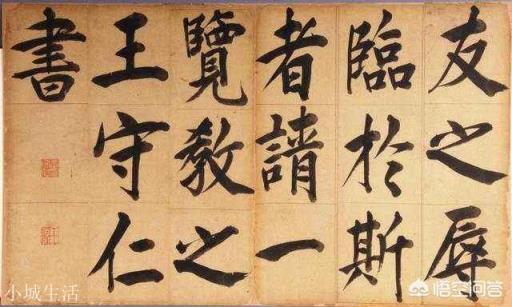 友之辱
臨於斯
者請一
覽教之
王守仁
書
小城生活
悟空问答